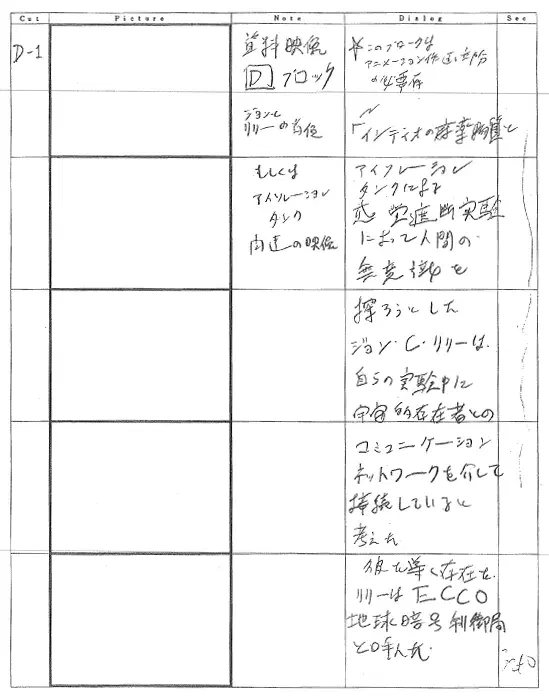 Cut Picture Note Dialog Sec
D-1
資料映像
D ブロック
ジョン・C
リリーの首位
もしくは
アイソレーション
タンク
関連の映像
※このブロックは
アニメーション作
「インディオの麻薬物質と
アイソレーション
タンクによる
感覚遮断実験
によって人間の
無意識を
探ろうとした
ジョン・C・リリーは、
自らの実験中に
宇宙的存在者との
コミュニケーション
ネットワークを介して
接続していると
考えた
彼を導く存在を
リリーは ECCO
地球暗号制御局
と呼んだ。